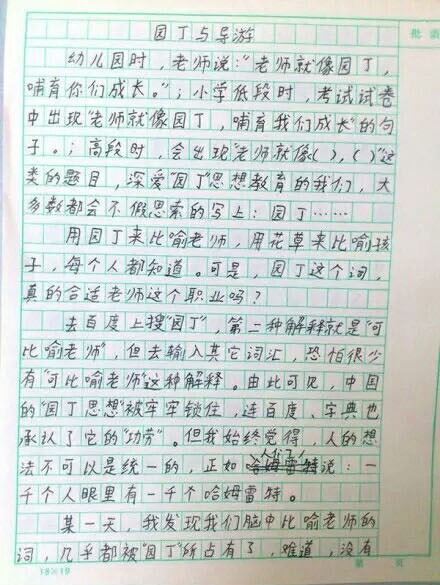 园丁与导游
批
幼儿园时，老师说："老师就像园丁，
哺育你们成长。"；小学低段时，考试试卷
中出现"老师就像园丁，哺育我们成长"的句
子。；高段时，会出现"老师就像( )，( )"这
类的题目，深爱"园丁"思想教育的我们，大
多数都会不假思索的写上：园丁……
用园丁来比喻老师，用花草来比喻孩
子，每个人都知道。可是，园丁这个词，
真的合适老师这个职业吗？
去百度上搜"园丁"，第二种解释就是"可
比喻老师"，但去输入其它词汇，恐怕很少
有"可比喻老师"这种解释。由此可见，中国
的"园丁思想"被牢牢锁住，连百度、字典也
承认了它的"功劳"。但我始终觉得，人的想
法不可以是统一的，正如人们哈姆雷特说：一
千个人眼里有一千个哈姆雷特。
某一天，我发现我们脑中比喻老师的
词，几乎都被"园丁"所占有了，难道，没有
18×19 第 页